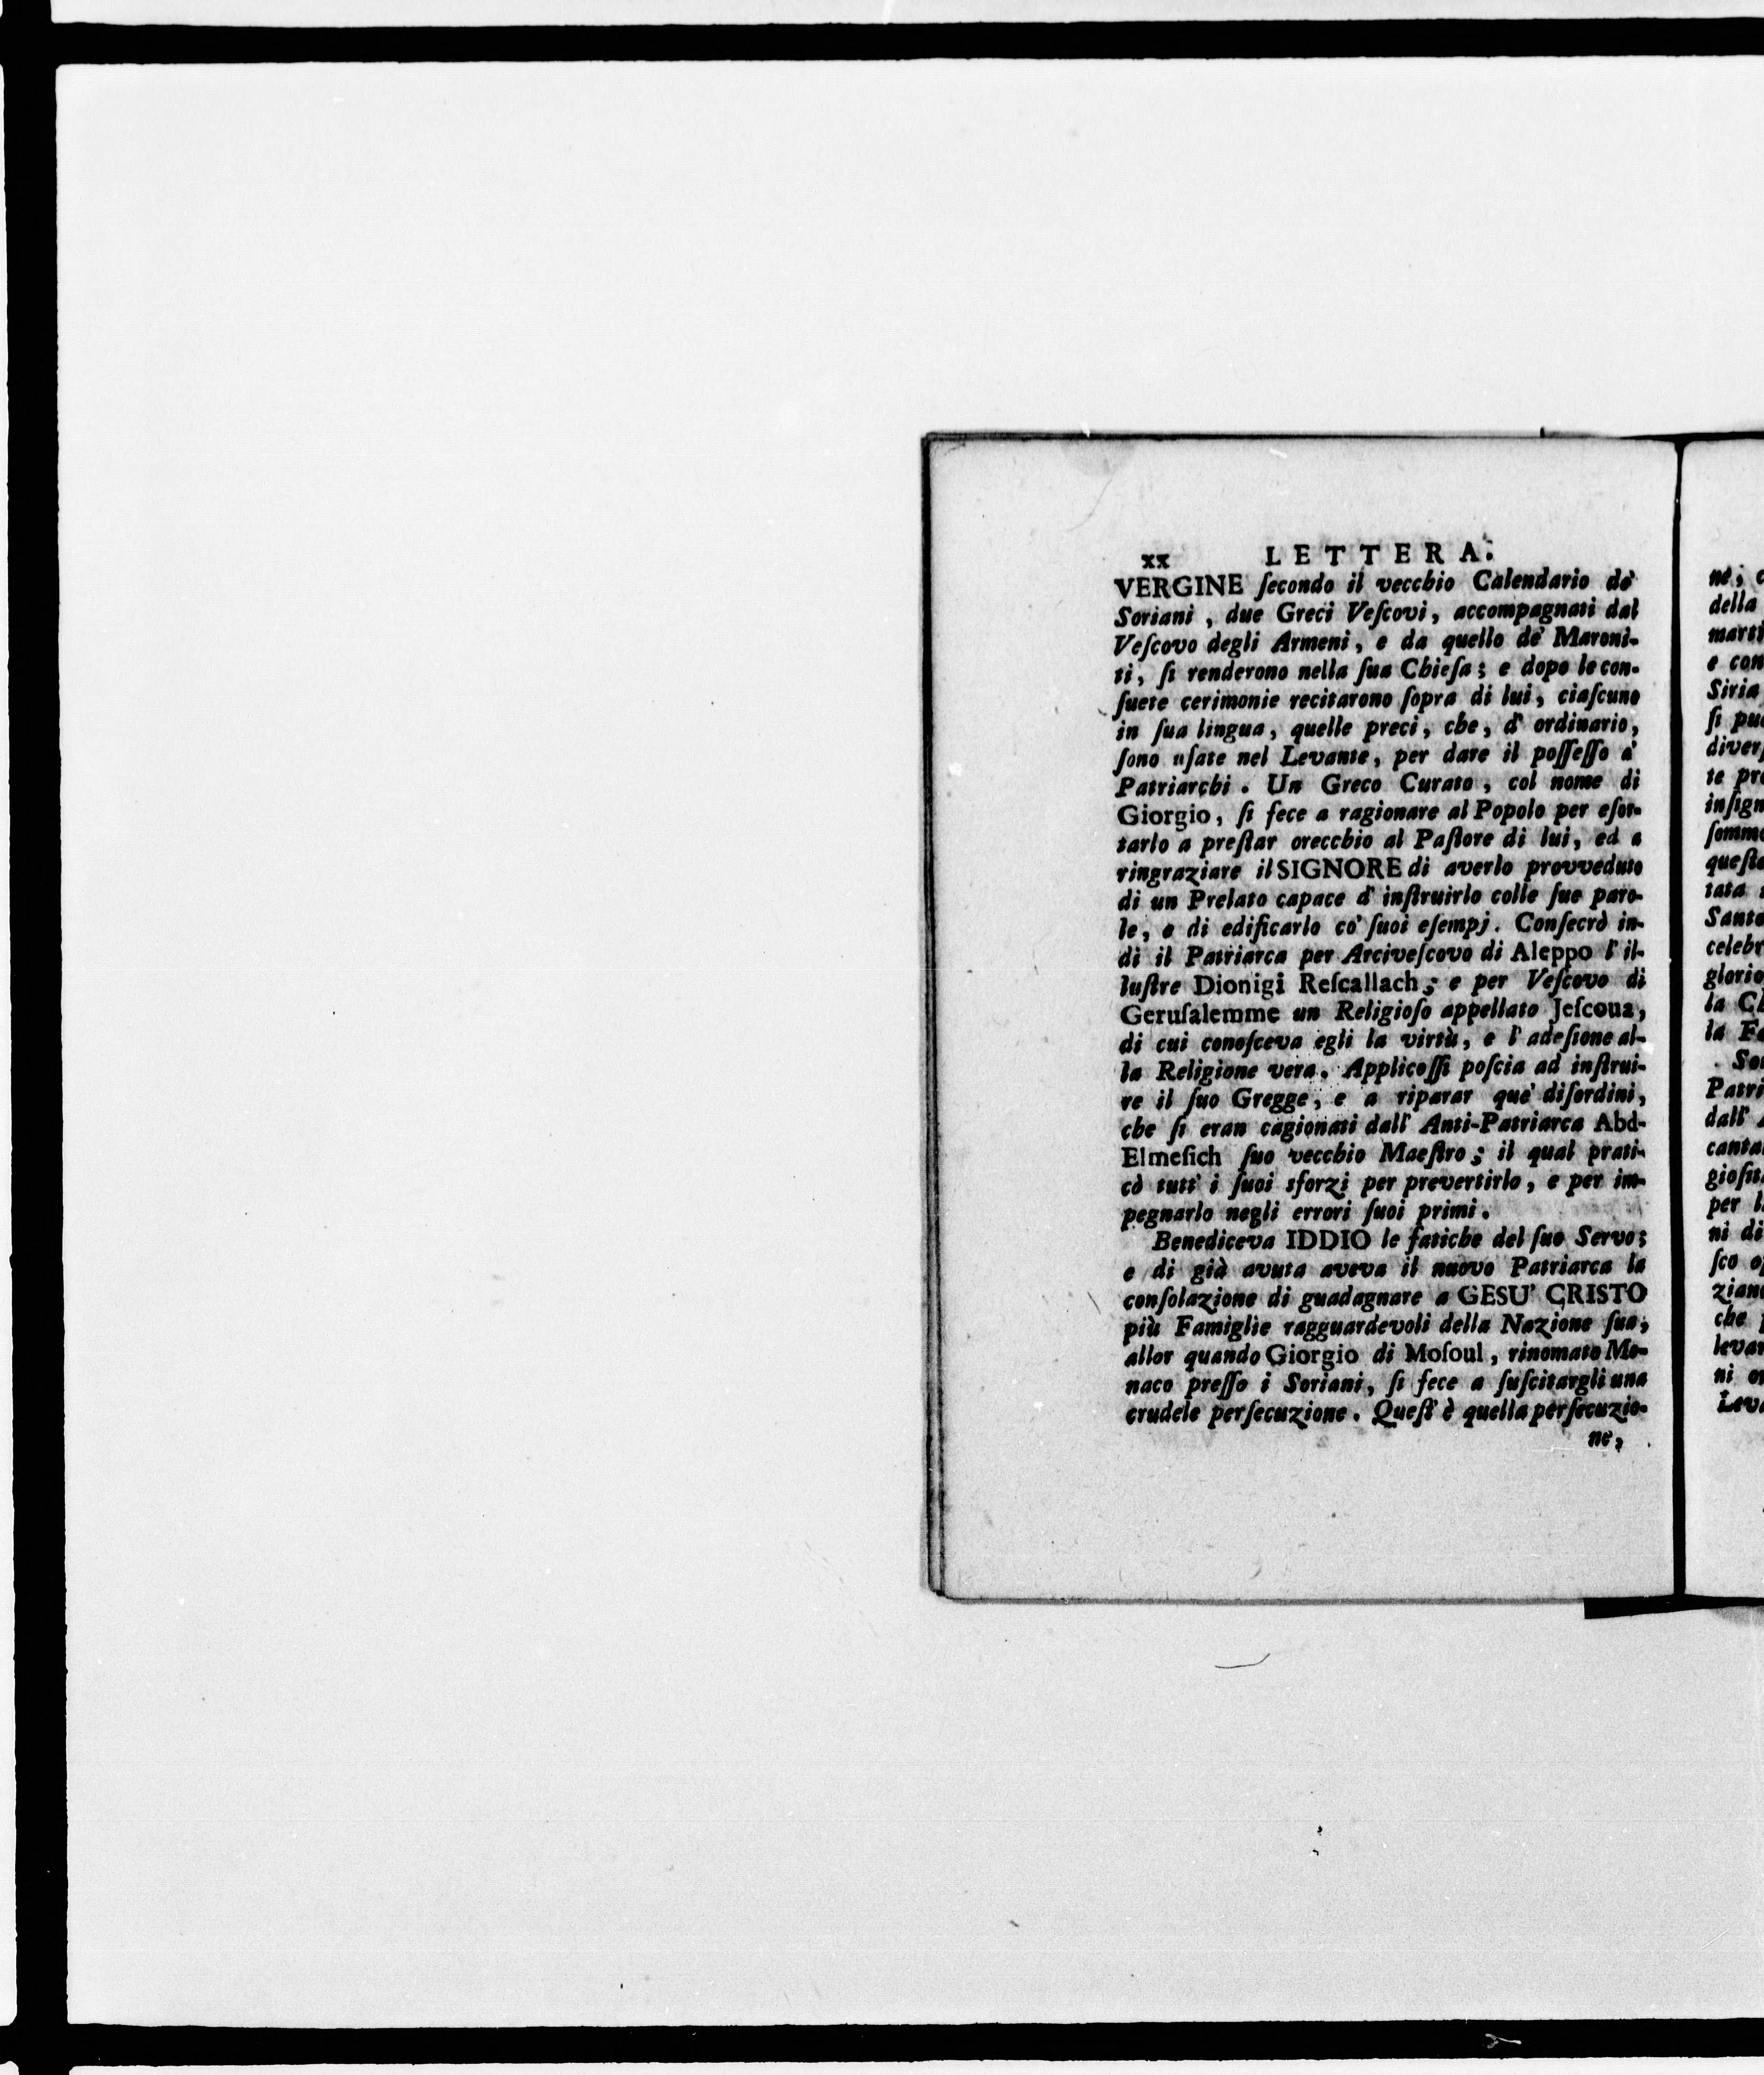 xx LETTERA.
VERGINE ſecondo il vecchio Calendario de'
Soriani, due Greci Veſcovi, accompagnati dal
Veſcovo degli Armeni, e da quello de' Maroni-
ti, ſi renderono nella ſua Chieſa; e dopo le con-
ſuete cerimonie recitarono ſopra di lui, ciaſcuno
in ſua lingua, quelle preci, che, d' ordinario,
ſono uſate nel Levante, per dare il poſſeſſo a'
Patriarchi. Un Greco Curato, col nome di
Giorgio, ſi fece a ragionare al Popolo per eſor-
tarlo a preſtar orecchio al Paſtore di lui, ed a
ringraziare il SIGNORE di averlo provveduto
di un Prelato capace d' inſtruirlo colle ſue paro-
le, e di edificarlo co' ſuoi eſempj. Conſecrò in-
di il Patriarca per Arciveſcovo di Aleppo l' il-
luſtre Dionigi Reſcallach; e per Veſcovo di
Geruſalemme un Religioſo appellato Jeſcoua,
di cui conoſceva egli la virtù, e l' adeſione al-
la Religione vera. Applicoſſi poſcia ad inſtrui-
re il ſuo Gregge, e a riparar que' diſordini,
che ſi eran cagionati dall' Anti-Patriarca Abd-
Elmeſich ſuo vecchio Maeſtro; il qual prati-
cò tutt' i ſuoi sforzi per prevertirlo, e per im-
pegnarlo negli errori ſuoi primi.
Benediceva IDDIO le fatiche del ſuo Servo;
e di già avuta aveva il nuovo Patriarca la
conſolazione di guadagnare a GESU' CRISTO
più Famiglie ragguardevoli della Nazione ſua,
allor quando Giorgio di Moſoul, rinomato Mo-
naco preſſo i Soriani, ſi fece a ſuſcitargli una
crudele perſecuzione. Queſt' è quella perſecuzio-
ne,
ne, 
della
e con
Siria
la
Patri
dall'
per
ni di
che
ni